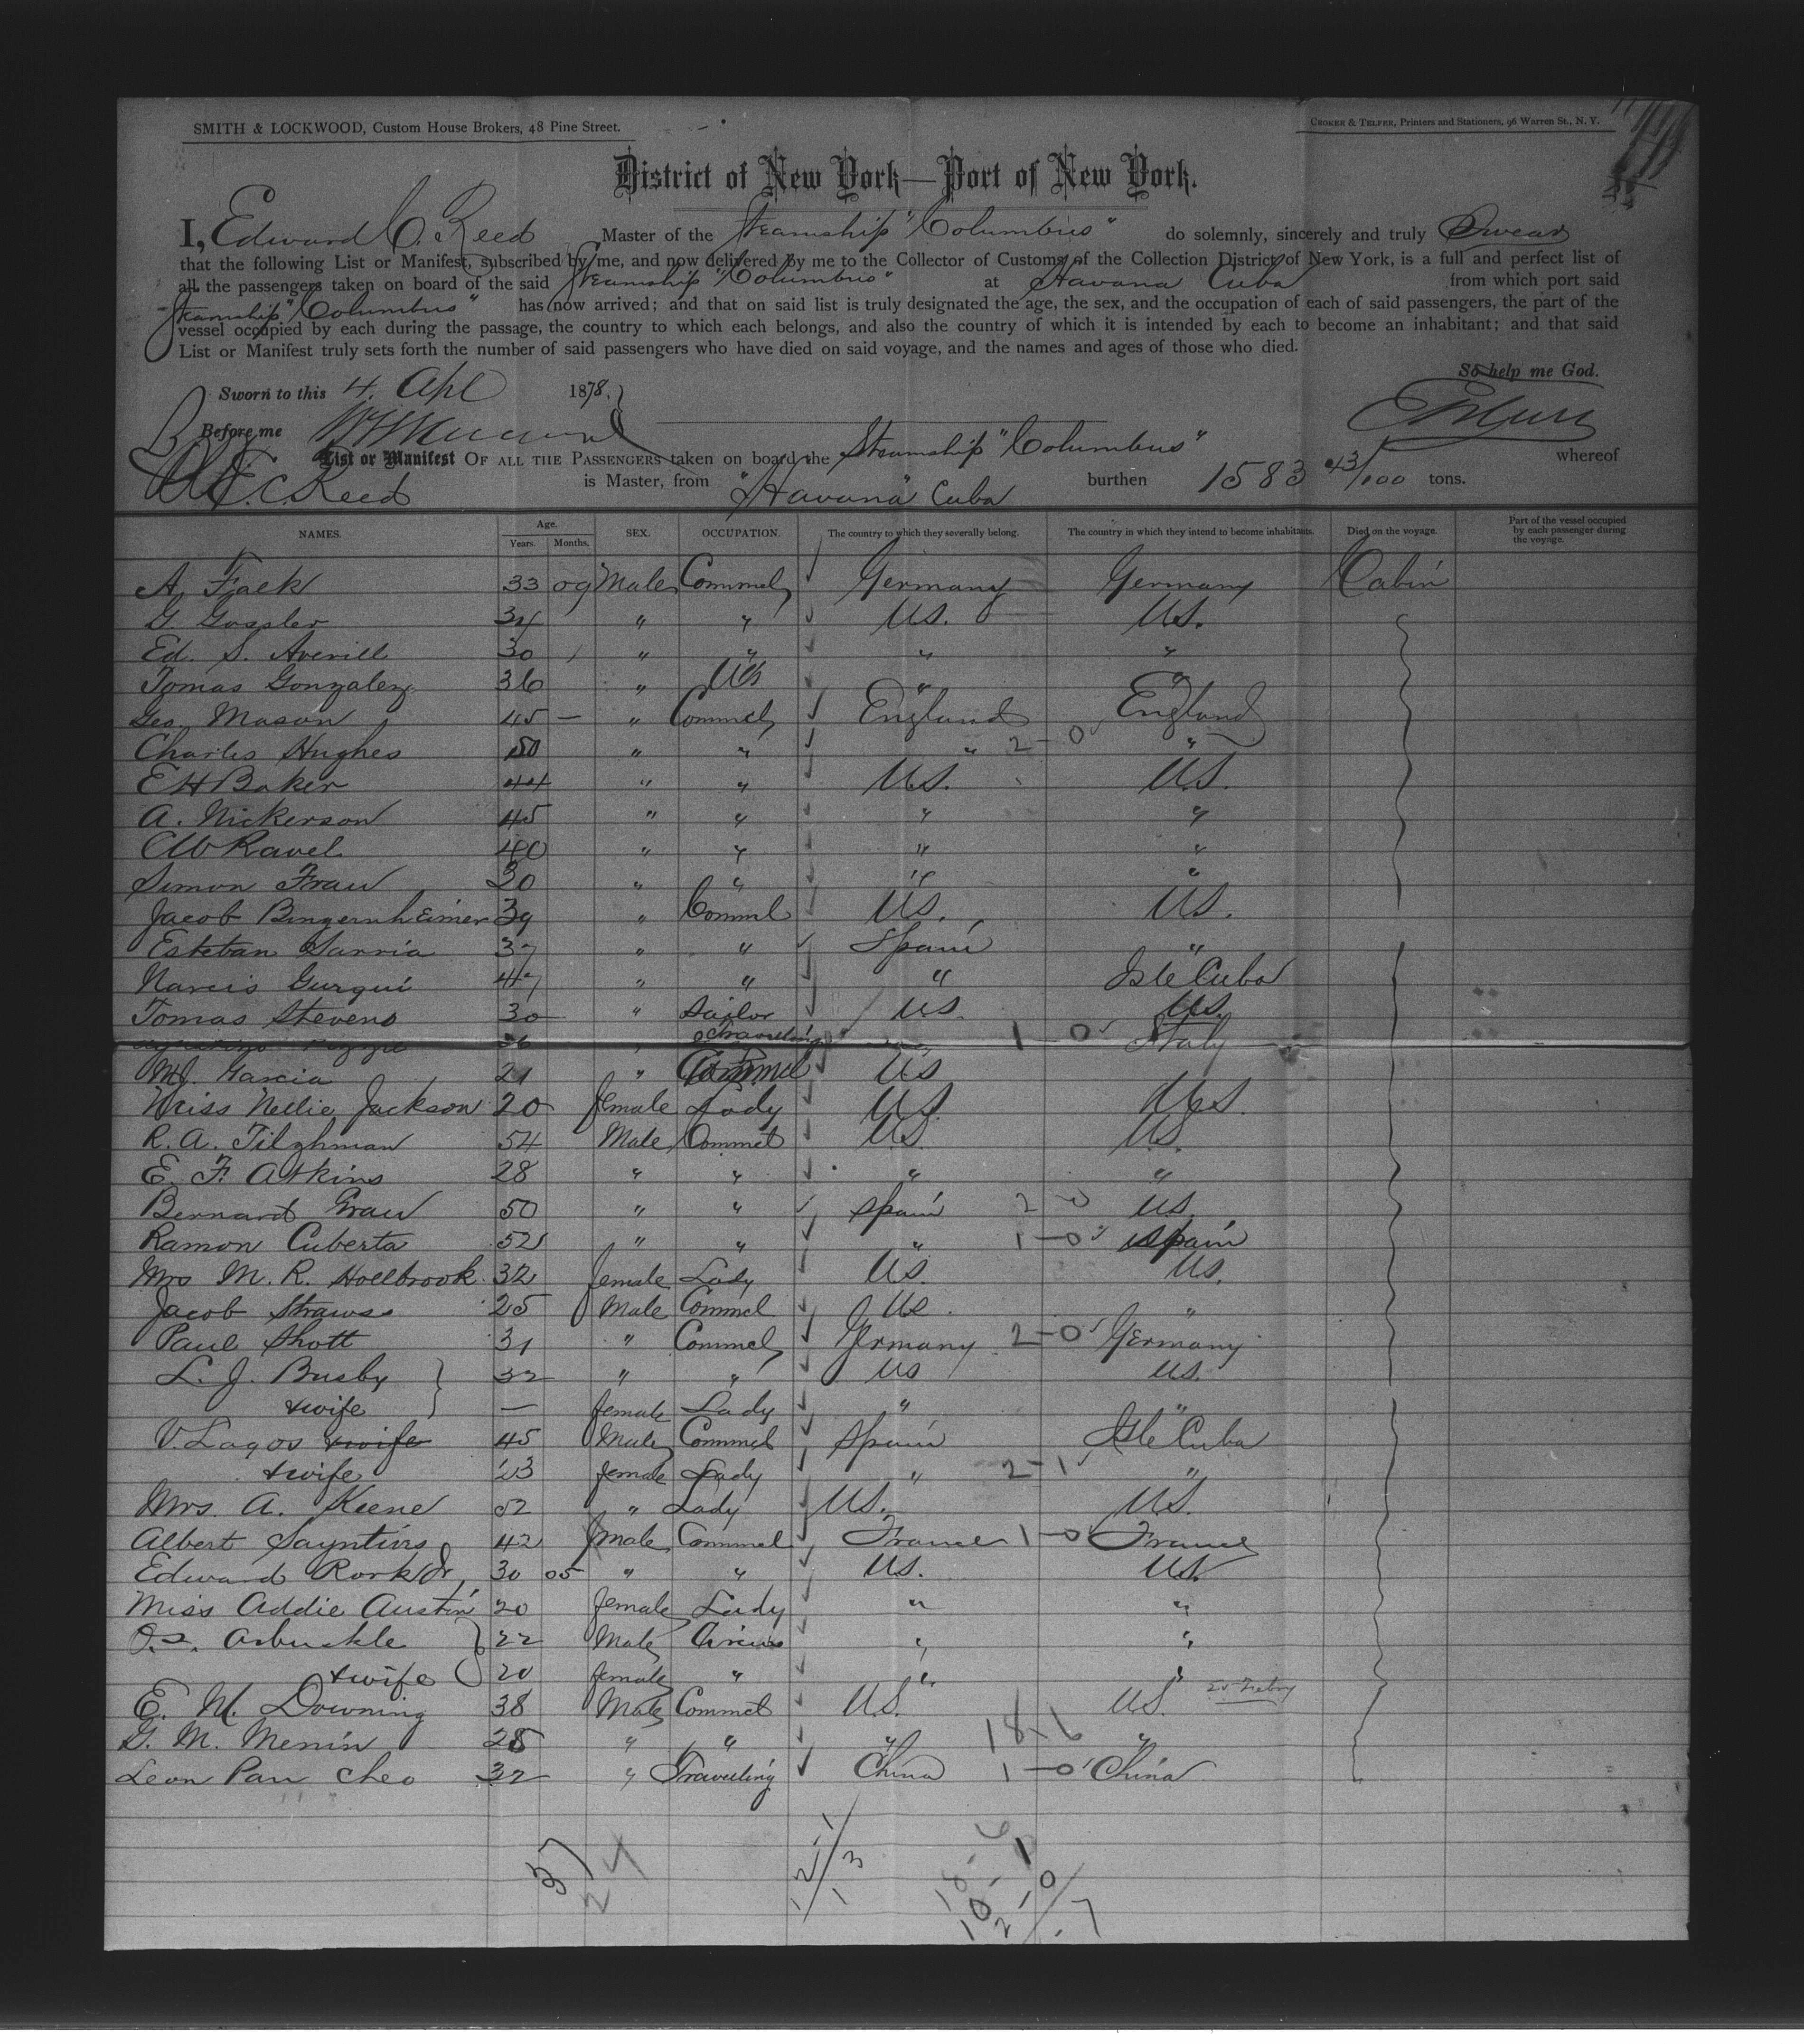 SMITH & LOCKWOOD, Custom House Brokers, 48 Pine Street.
CROKER & TELFER, Printers and Stationers, 96 Warren St., N. Y.
District of New York—Port of New York.
I, Edward C. Reed Master of the Steamship "Columbus" do solemnly, sincerely and truly Swear
that the following List or Manifest, subscribed by me, and now delivered by me to the Collector of Customs of the Collection District of New York, is a full and perfect list of
all the passengers taken on board of the said Steamship "Columbus" at Havana Cuba from which port said
Steamship "Columbus" has now arrived; and that on said list is truly designated the age, the sex, and the occupation of each of said passengers, the part of the
vessel occupied by each during the passage, the country to which each belongs, and also the country of which it is intended by each to become an inhabitant; and that said
List or Manifest truly sets forth the number of said passengers who have died on said voyage, and the names and ages of those who died.
So help me God.
Sworn to this 4. Apl 1878,
Before me
List or Manifest OF ALL THE PASSENGERS taken on board the Steamship "Columbus" whereof
E. C. Reed is Master, from "Havana" Cuba burthen 1583 43/100 tons.
NAMES. Age. Years. Months. SEX. OCCUPATION. The country to which they severally belong. The country in which they intend to become inhabitants. Died on the voyage. Part of the vessel occupied by each passenger during the voyage.
A. Falk 33 09 Male Commel Germany Germany Cabin
G. Gossler 34 " " US. US.
Ed. S. Averill 30 " " " "
Tomas Gonzalez 36 " " "
Geo. Mason 45 — " Commel England England
Charles Hughes 50 " " " 2-0 "
E H Baker 44 " " US. US.
A. Nickerson 45 " " " "
Ravel 40 " " " "
Simon Frau 30 " " " "
Jacob Bingernheimer 39 " Comml US. US.
Esteban Sarria 37 " " Spain "
Narcis Gurgui 47 " " " Isle Cuba
Tomas Stevens 30 " Sailor US. US.
36 " Traveling 1-0 Italy
M. J. Garcia 21 " Commel US
Miss Nellie Jackson 20 female Lady US. US.
R. A. Tilghman 54 Male Commel US. US.
E. F. Atkins 28 " " " "
Bernard Grau 50 " " Spain 2-0 US.
Ramon Cuberta 52 " " " 1-0 Spain
Mrs M. R. Hollbrook 32 female Lady US. US.
Jacob Strauss 25 Male Commel US. "
Paul Shott 31 " Commel Germany 2-0 Germany
L. J. Busby 32 " " US US.
& wife — female Lady " "
V. Lagos & wife 45 Male Commel Spain Isle Cuba
& wife 23 female Lady " 2-1 "
Mrs. A. Keene 52 " Lady US. US.
Albert Sayntins 42 male Commel France 1-0 France
Edward Rork Jr, 30 05 " " US. US.
Miss Addie Austin 20 female Lady " "
Arbuckle 22 Male Circus " "
& wife 20 female " " "
E. M. Downing 38 Male Commel U.S. US.
G. M. Menin 28 " " " 18-6 "
Leon Pan Cheo 32 " Traveling China 1-0 China
37
24
12-1
/ 13
18-6
10-1
2-0